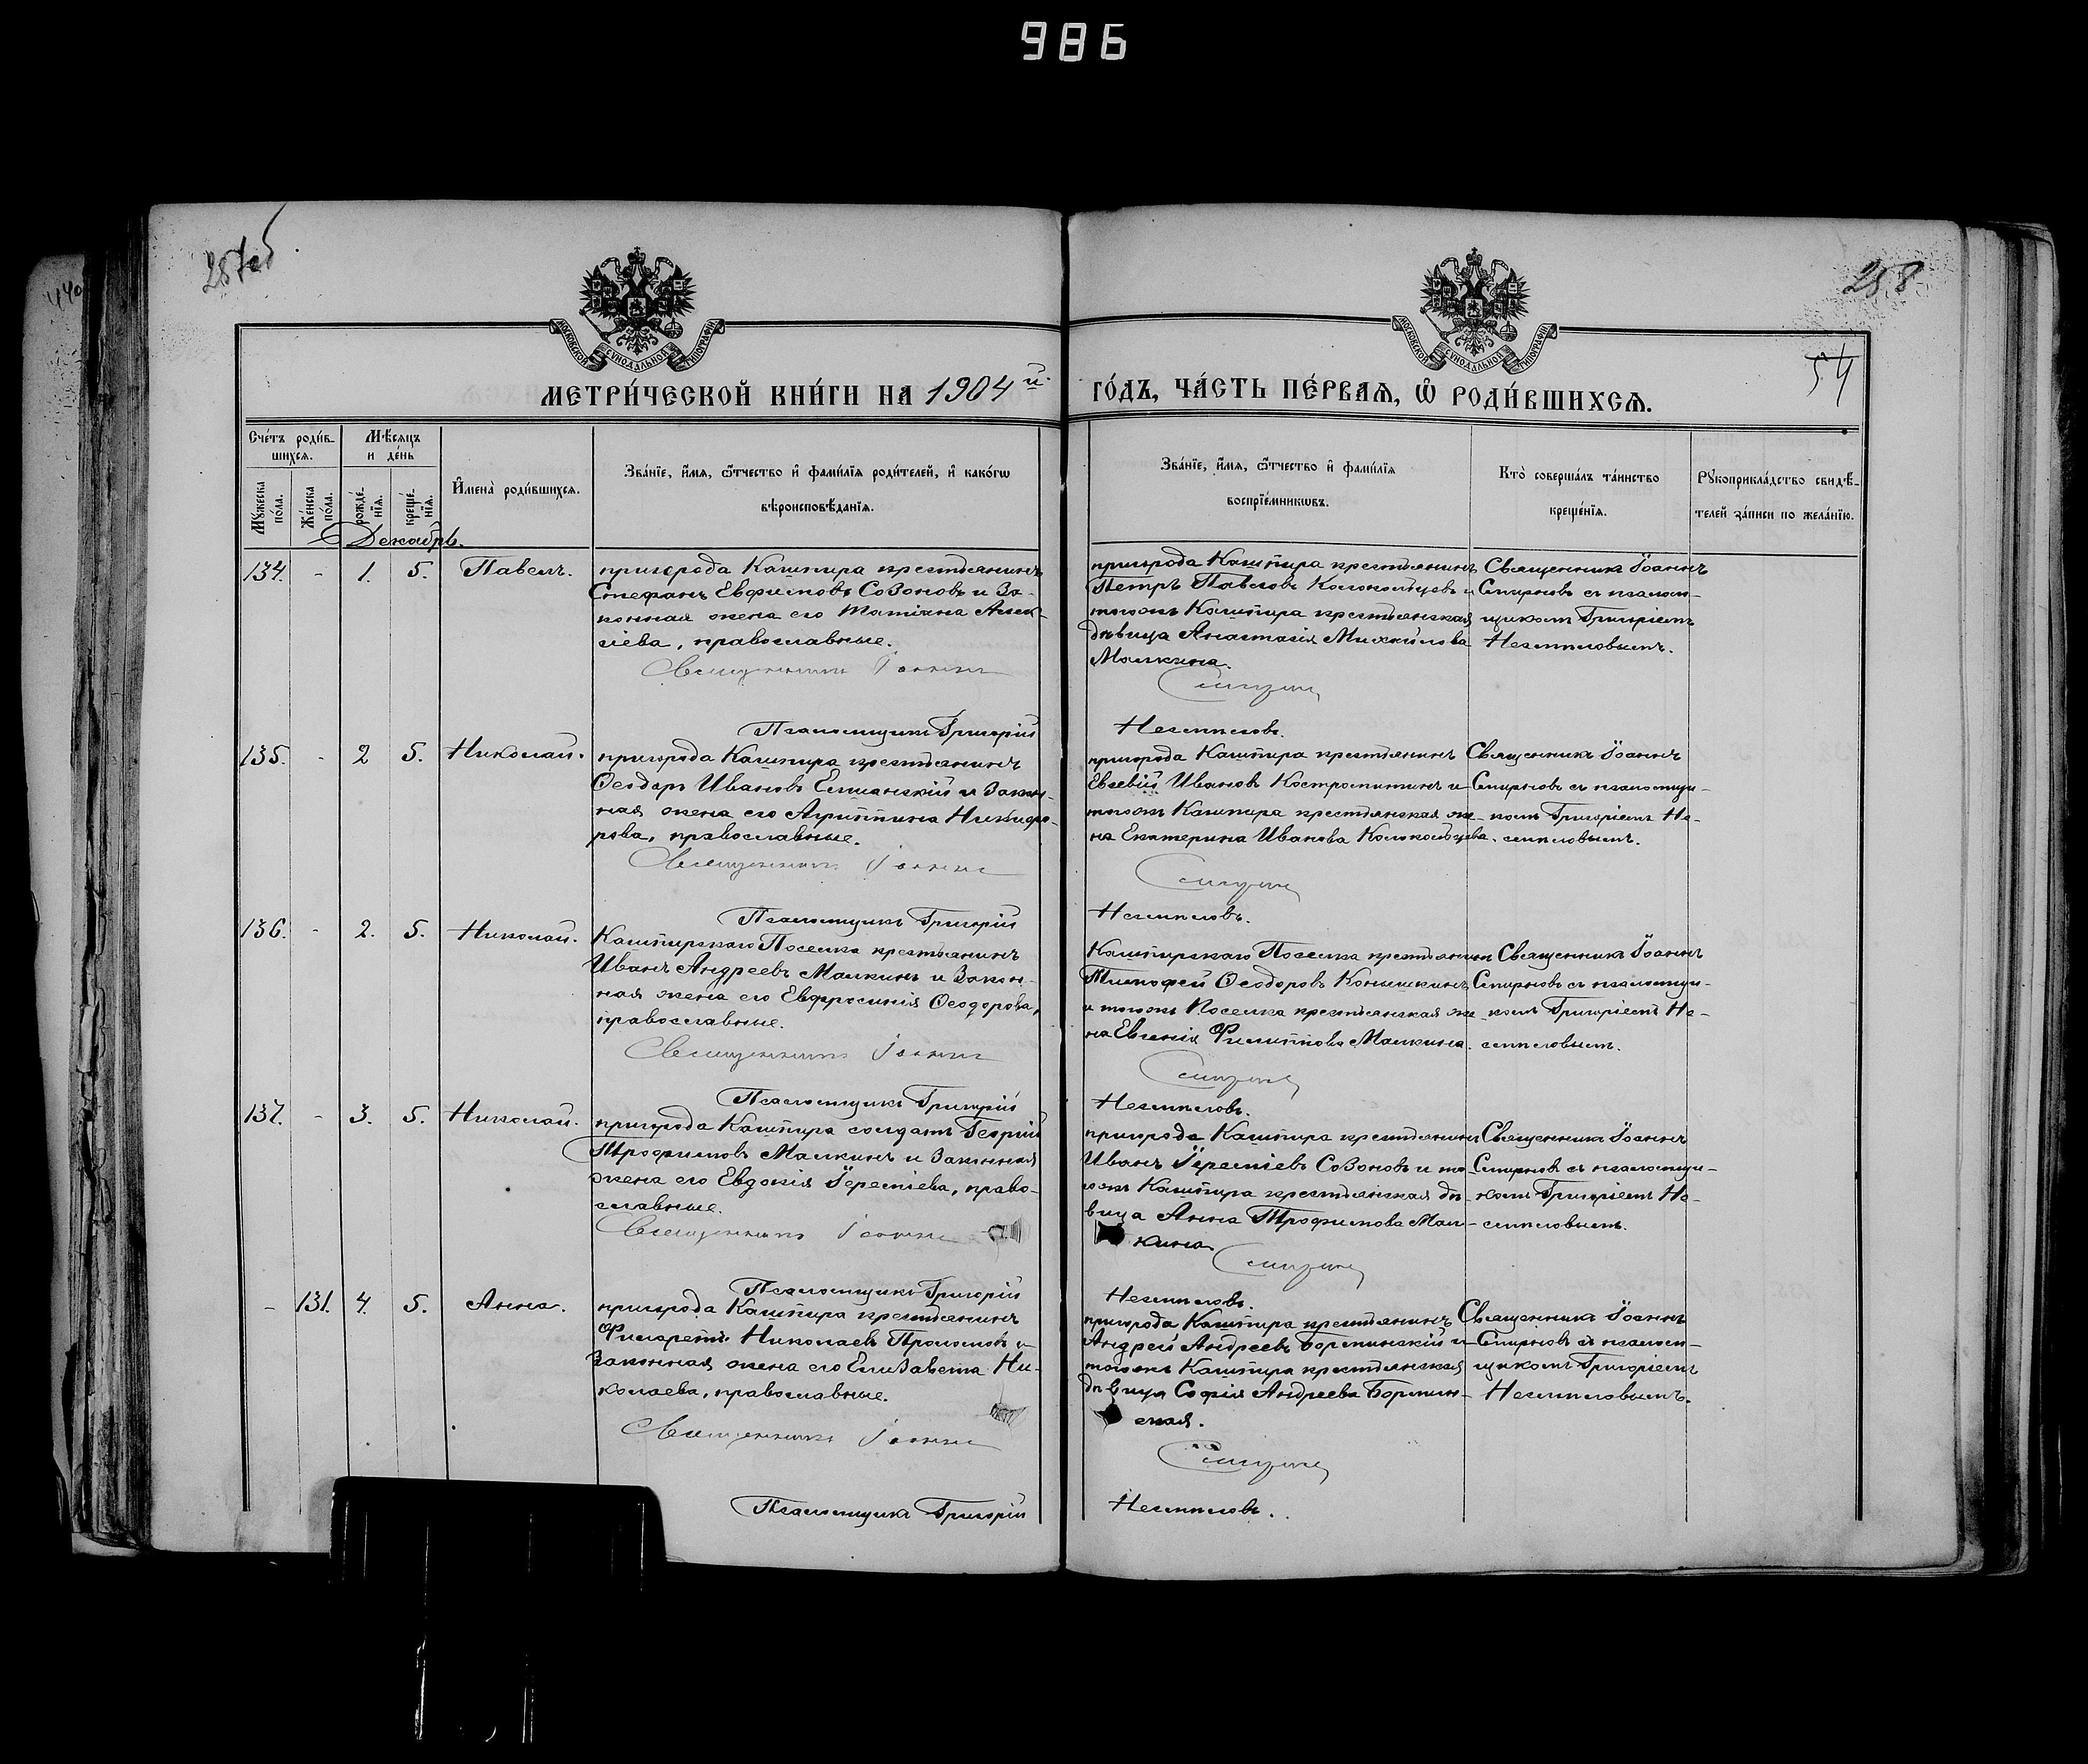 986
287об.
258
54
МОСКОВСКОЙ СУНОДАЛЬНОЙ ТИПОГРАФІИ
МОСКОВСКОЙ СУНОДАЛЬНОЙ ТИПОГРАФІИ
МЕТРИ́ЧЕСКОЙ КНИ́ГИ НА 1904й
ГО́ДЪ, ЧА́СТЬ ПЕ́РВАѦ, Ѡ҆ РОДИ́ВШИХСѦ.
Сче́тъ роди́в-
шихсѧ.
Мꙋ́жеска по́ла.
Же́нска по́ла.
Мѣ́сѧцъ
и де́нь
рожде́-
нїѧ.
креще́-
нїѧ.
И҆мена̀ роди́вшихсѧ.
Зва́нїе, и҆́мѧ, ѻ҆́тчество и҆ фами́лїѧ роди́телей, и҆ како́гѡ
вѣроисповѣ́данїѧ.
Зва́нїе, и҆́мѧ, ѻ҆́тчество и҆ фами́лїѧ
воспрїе́мникѡвъ.
Кто̀ соверша́лъ та́инство
креще́нїѧ.
Рꙋкоприкла́дство свидѣ́-
телей за́писи по жела́нїю.
Декабрь.
134. - 1. 5. Павелъ.
пригорода Кашпира крестьянинъ
Стефанъ Евфимовъ Созоновъ и за-
конная жена его Татіана Алек-
сіева, православные.
Священникъ Іоаннъ
Псаломщикъ Григорій
пригорода Кашпира крестьянинъ
Петръ Павловъ Колокольцевъ и
тогожъ Кашпира крестьянская
дѣвица Анастасія Михаилова
Малкина.
Смирновъ
Несмѣловъ.
Священникъ Іоаннъ
Смирновъ съ псалом-
щикомъ Григоріемъ
Несмѣловымъ.
135. - 2 5. Николай.
пригорода Кашпира крестьянинъ
Ѳеодоръ Ивановъ Елшанскій и закон-
ная жена его Агриппина Никифо-
рова, православные.
Священникъ Іоаннъ
Псаломщикъ Григорій
пригорода Кашпира крестьянинъ
Евсевій Ивановъ Костромитинъ и
тогожъ Кашпира крестьянская же-
на Екатерина Иванова Колокольцева.
Смирновъ
Несмѣловъ.
Священникъ Іоаннъ
Смирновъ съ псаломщи-
комъ Григоріемъ Не-
смѣловымъ.
136. - 2. 5. Николай.
Кашпирскаго Поселка крестьянинъ
Иванъ Андреевъ Малкинъ и закон-
ная жена его Евфросинія Ѳеодорова,
православные.
Священникъ Іоаннъ
Псаломщикъ Григорій
Кашпирскаго Поселка крестьянинъ
Тимофей Ѳеодоровъ Конышкинъ
и тогожъ Поселка крестьянская же-
на Евгенія Филиппова Малкина.
Смирновъ
Несмѣловъ.
Священникъ Іоаннъ
Смирновъ съ псаломщи-
комъ Григоріемъ Не-
смѣловымъ.
137. - 3. 5. Николай.
пригорода Кашпира солдатъ Георгій
Трофимовъ Малкинъ и законная
жена его Евдокія Іереміева, право-
славные.
Священникъ Іоаннъ
Псаломщикъ Григорій
пригорода Кашпира крестьянинъ
Иванъ Іереміевъ Созоновъ и то-
гожъ Кашпира крестьянская дѣ-
вица Анна Трофимова Мал-
кина.
Смирновъ
Несмѣловъ.
Священникъ Іоаннъ
Смирновъ съ псаломщи-
комъ Григоріемъ Не-
смѣловымъ.
- 131. 4. 5. Анна.
пригорода Кашпира крестьянинъ
Филаретъ Николаевъ Проломовъ и
законная жена его Елизавета Ни-
колаева, православные.
Священникъ Іоаннъ
Псаломщикъ Григорій
пригорода Кашпира крестьянинъ
Андрей Андреевъ Борминскій и
тогожъ Кашпира крестьянская
дѣвица Софія Андреева Бормин-
ская.
Смирновъ
Несмѣловъ.
Священникъ Іоаннъ
Смирновъ съ псалом-
щикомъ Григоріемъ
Несмѣловымъ.